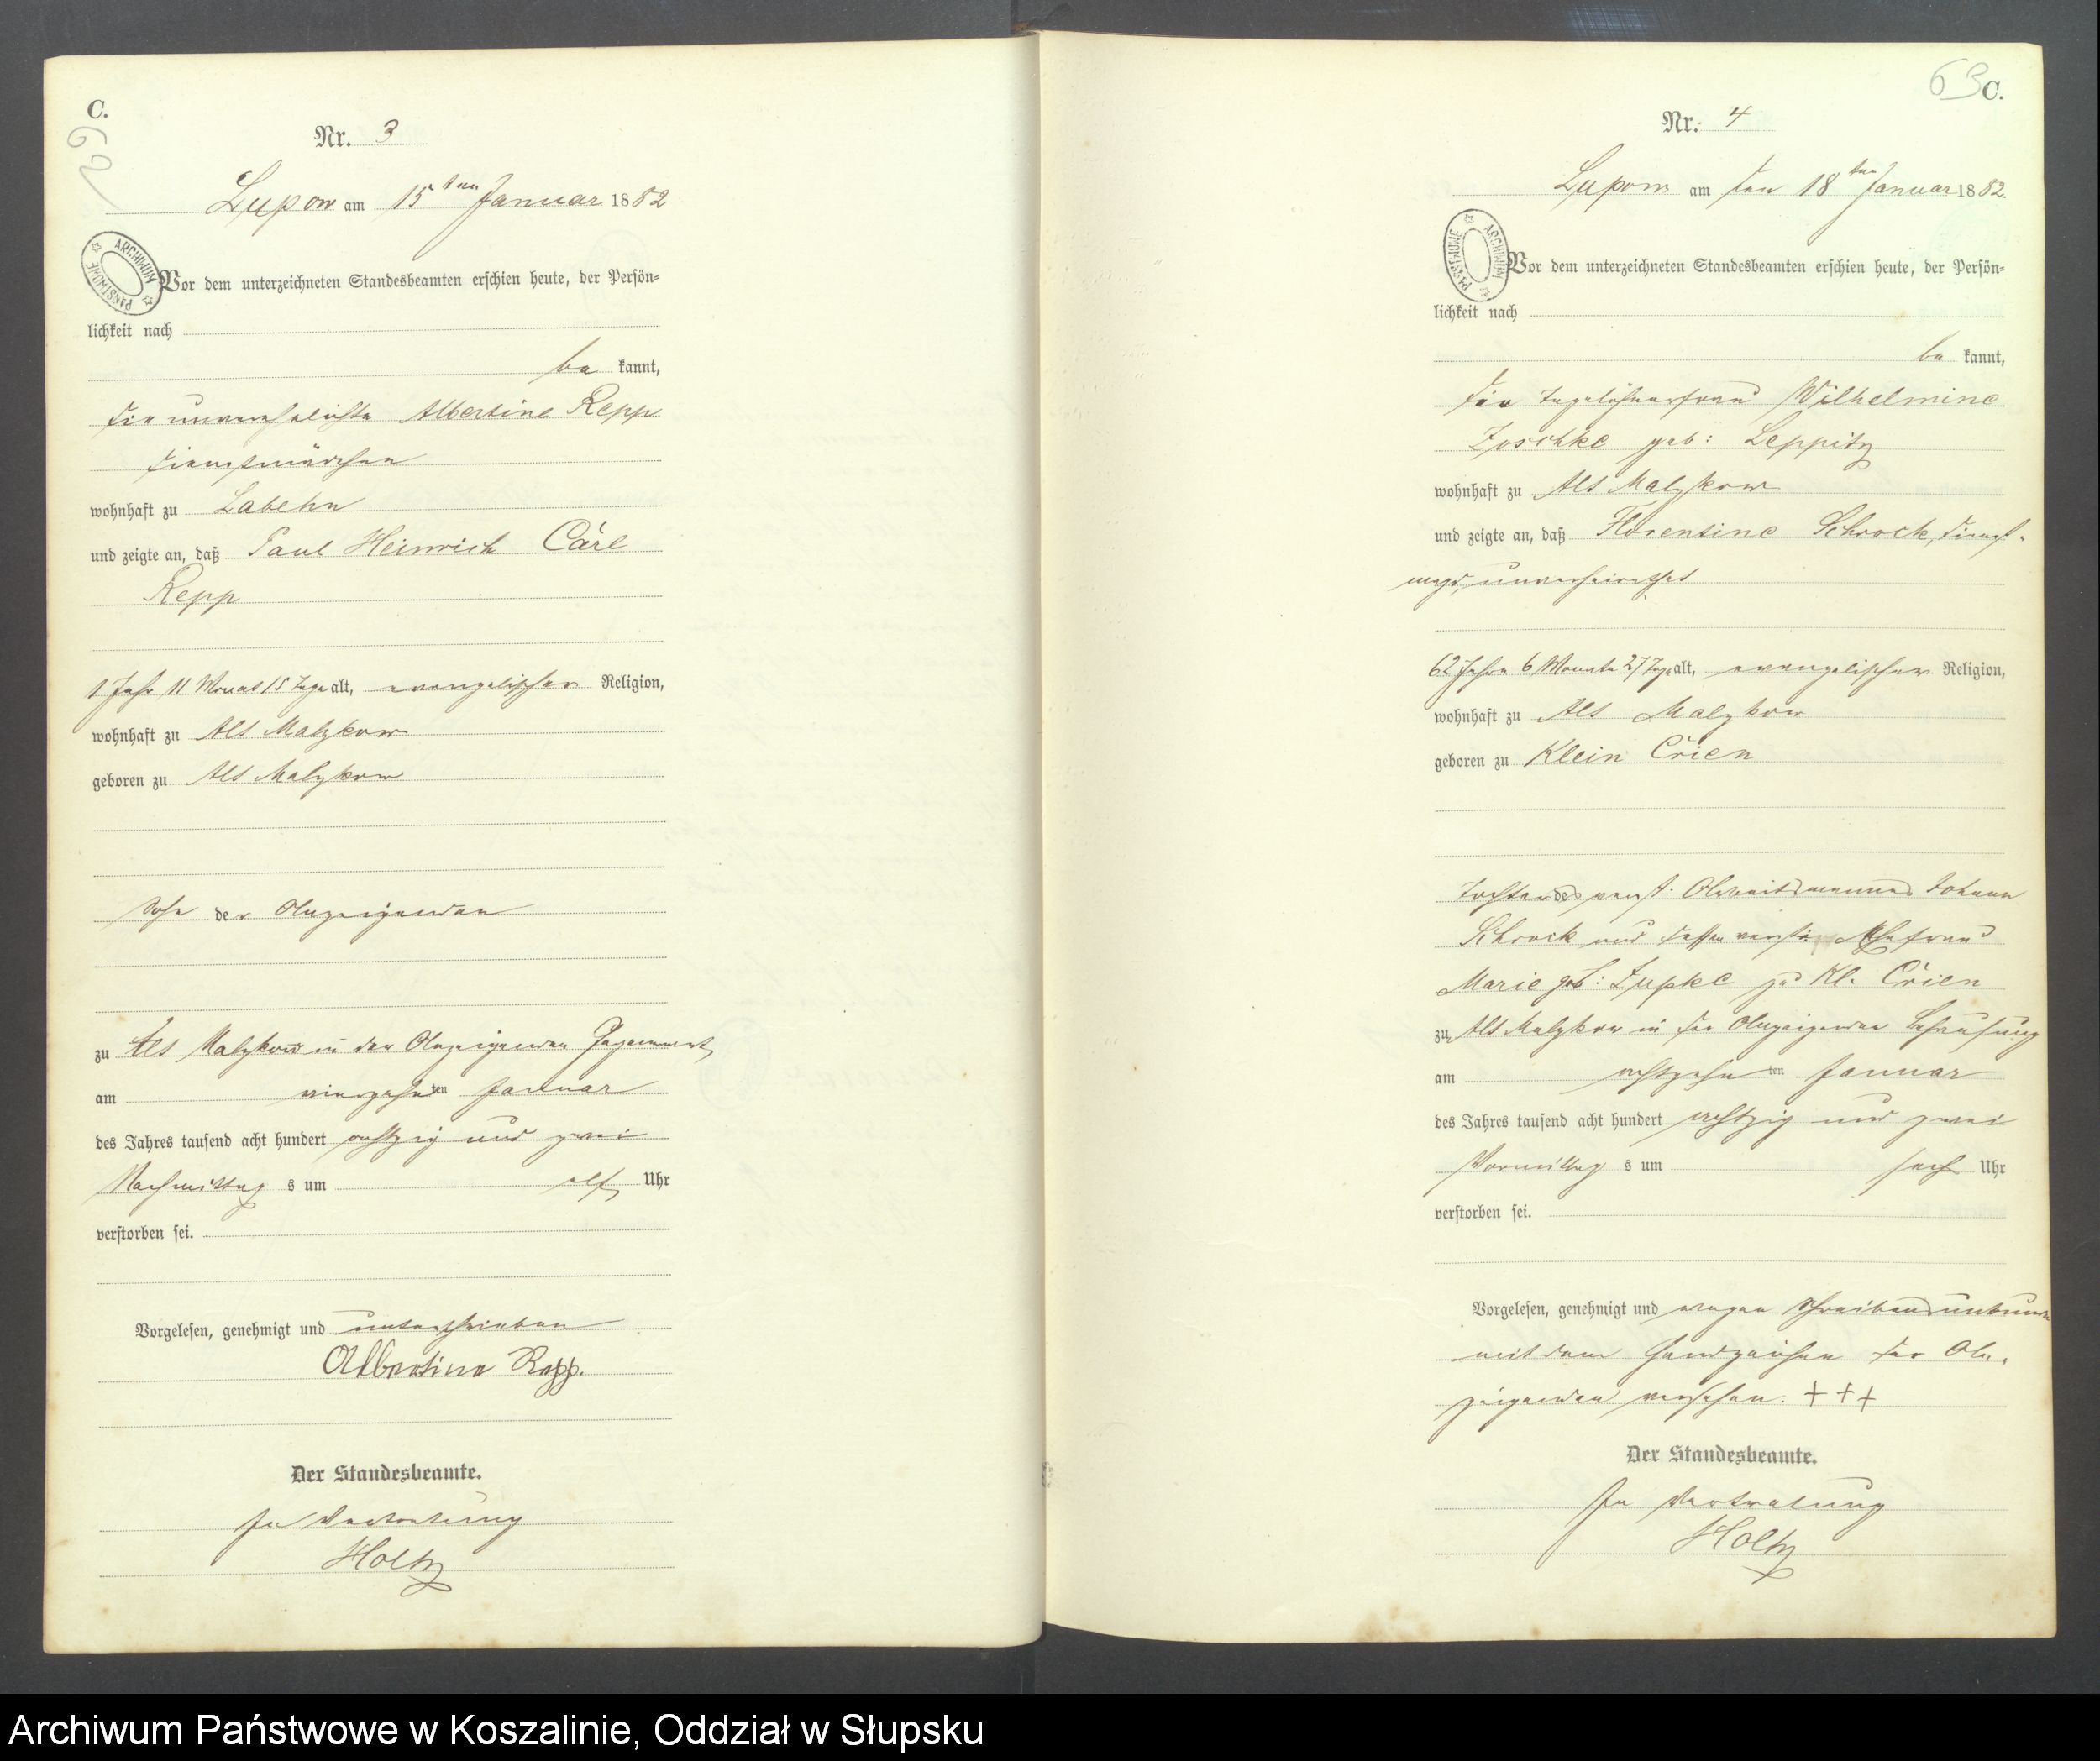 C.
69
Nr. 3
Lupow am 15ten Januar 1882
ARCHIWUM PAŃSTWOWE
Vor dem unterzeichneten Standesbeamten erschien heute, der Persön=
lichkeit nach
be kannt,
die unverehelichte Albertine Repp
Dienstmädchen
wohnhaft zu Labehn
und zeigte an, daß Paul Heinrich Carl
Repp
1 Jahr 11 Monat 15 Tage alt, evangelischer Religion,
wohnhaft zu Alt Malzkow
geboren zu Alt Malzkow
Sohn der Anzeigenden
zu Alt Malzkow in der Anzeigenden Gegenwart
am vierzehnten Januar
des Jahres tausend acht hundert achtzig und zwei
Nachmittag s um elf Uhr
verstorben sei.
Vorgelesen, genehmigt und unterschrieben
Albertine Repp.
Der Standesbeamte.
In Vertretung
Holtz
63 C.
Nr. 4
Lupow am den 18ten Januar 1882.
ARCHIWUM PAŃSTWOWE
Vor dem unterzeichneten Standesbeamten erschien heute, der Persön=
lichkeit nach
be kannt,
die Tagelöhnerfrau Wilhelmine
Zoschke geb: Leppitz
wohnhaft zu Alt Malzkow
und zeigte an, daß Florentine Schrock, Dienst-
magd, unverheirathet
62 Jahre 6 Monate 27 Tage alt, evangelischer Religion,
wohnhaft zu Alt Malzkow
geboren zu Klein Crien
Tochter des verst: Arbeitsmannes Johann
Schrock und dessen verst: Ehefrau
Marie geb: Zupke zu Kl. Crien
zu Alt Malzkow in der Anzeigenden Behausung
am achtzehnten Januar
des Jahres tausend acht hundert achtzig und zwei
Vormittag s um sechs Uhr
verstorben sei.
Vorgelesen, genehmigt und wegen Schreibensunkunde
mit dem Handzeichen der An-
zeigenden versehen. + + +
Der Standesbeamte.
In Vertretung
Holtz
Archiwum Państwowe w Koszalinie, Oddział w Słupsku